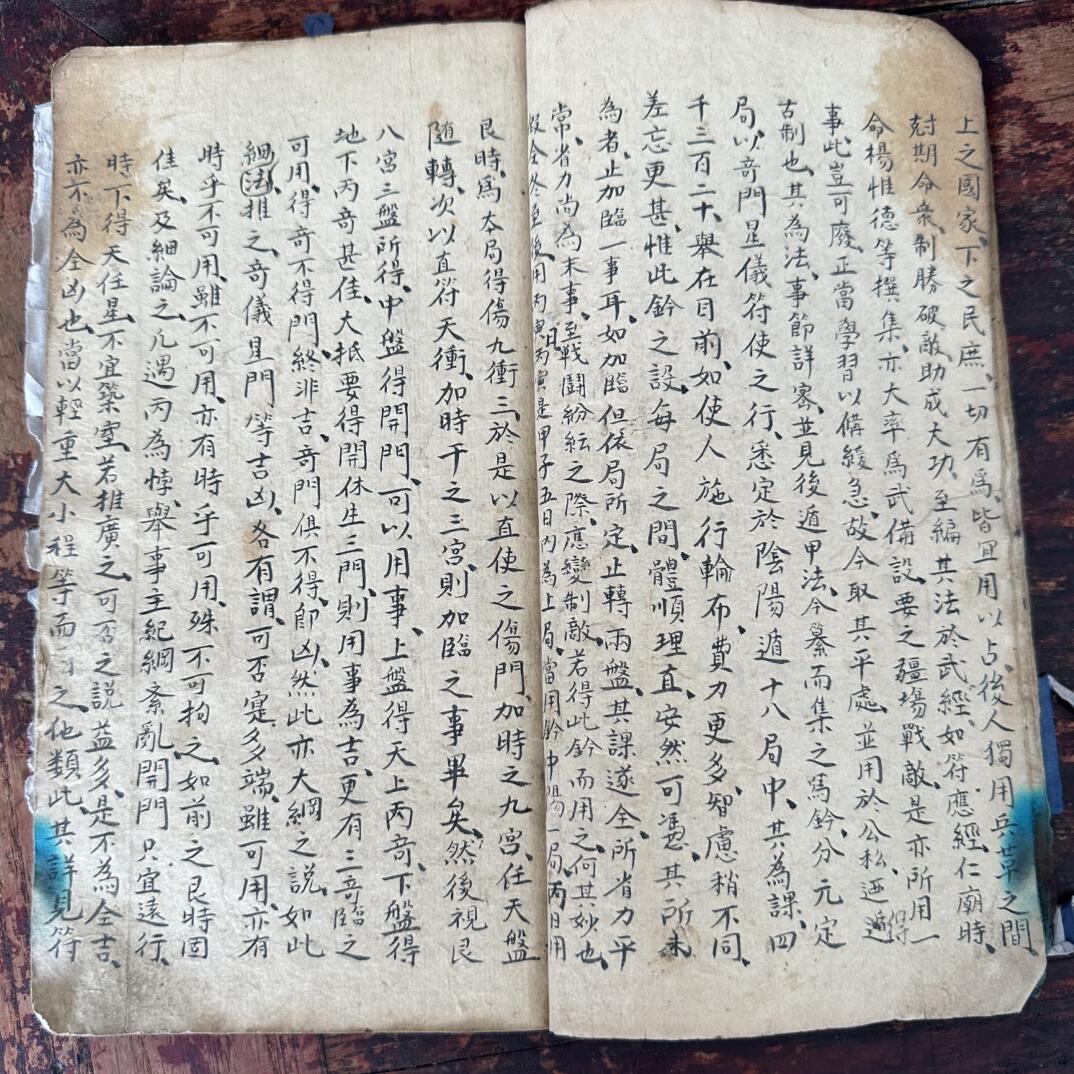 上之國家、下之民庶、一切有爲、皆宜用以占、後人獨用兵革之間、
尅期命衆、制勝破敵、助成大功、至編其法於武經、如符應經、仁廟時、
命楊惟德等撰集、亦大率爲武備設、要之疆場戰敵、是亦所用一
事、此豈可廢、正當學習以備緩急、故今取其平處、並用於公私、迺遁得
古制也、其為法、事節詳密、並見後遁甲法、今纂而集之爲鈐、分元定
局、以奇門星儀符使之行、悉定於陰陽遁十八局中、其為課、四
千三百二十、舉在目前、如使人施行輪布、費力更多、智慮稍不同、
差忘更甚、惟此鈐之設、每局之間、體順理直、安然可憑、其所未
為者、止加臨一事耳、如加臨、但依局所定、止轉兩盤、其課遂全、所省力平
常、省力尚為末事、至戰鬪紛紜之際、應變制敵、若得此鈐而用之、何其妙也、
假令冬至後、用丙寅日、丙寅是甲子五日内、為上局、當用鈐中陽一局、丙日用
艮時、爲本局得傷九衝三、於是以直使之傷門、加時之九宮、任天盤
随轉、次以直符天衝、加時干之三宮、則加臨之事畢矣、然後視艮
八宮三盤所得、中盤得開門、可以用事、上盤得天上丙奇、下盤得
地下丙奇甚佳、大抵要得開休生三門、則用事為吉、更有三奇臨之
可用、得奇不得門、終非吉、奇門俱不得、卽凶、然此亦大綱之説、如此
細法推之、奇儀星門等吉凶、各有謂、可否寔多端、雖可用、亦有
時乎不可用、雖不可用、亦有時乎可用、殊不可拘之、如前之艮時固
佳矣、及細論之、凡遇丙為悖、舉事主紀綱紊亂、開門只宜遠行、
時下得天任星、不宜築室、若推廣之、可否之説益多、是不為全吉、
亦不為全凶也、當以輕重大小程等而言之、他類此、其詳見符